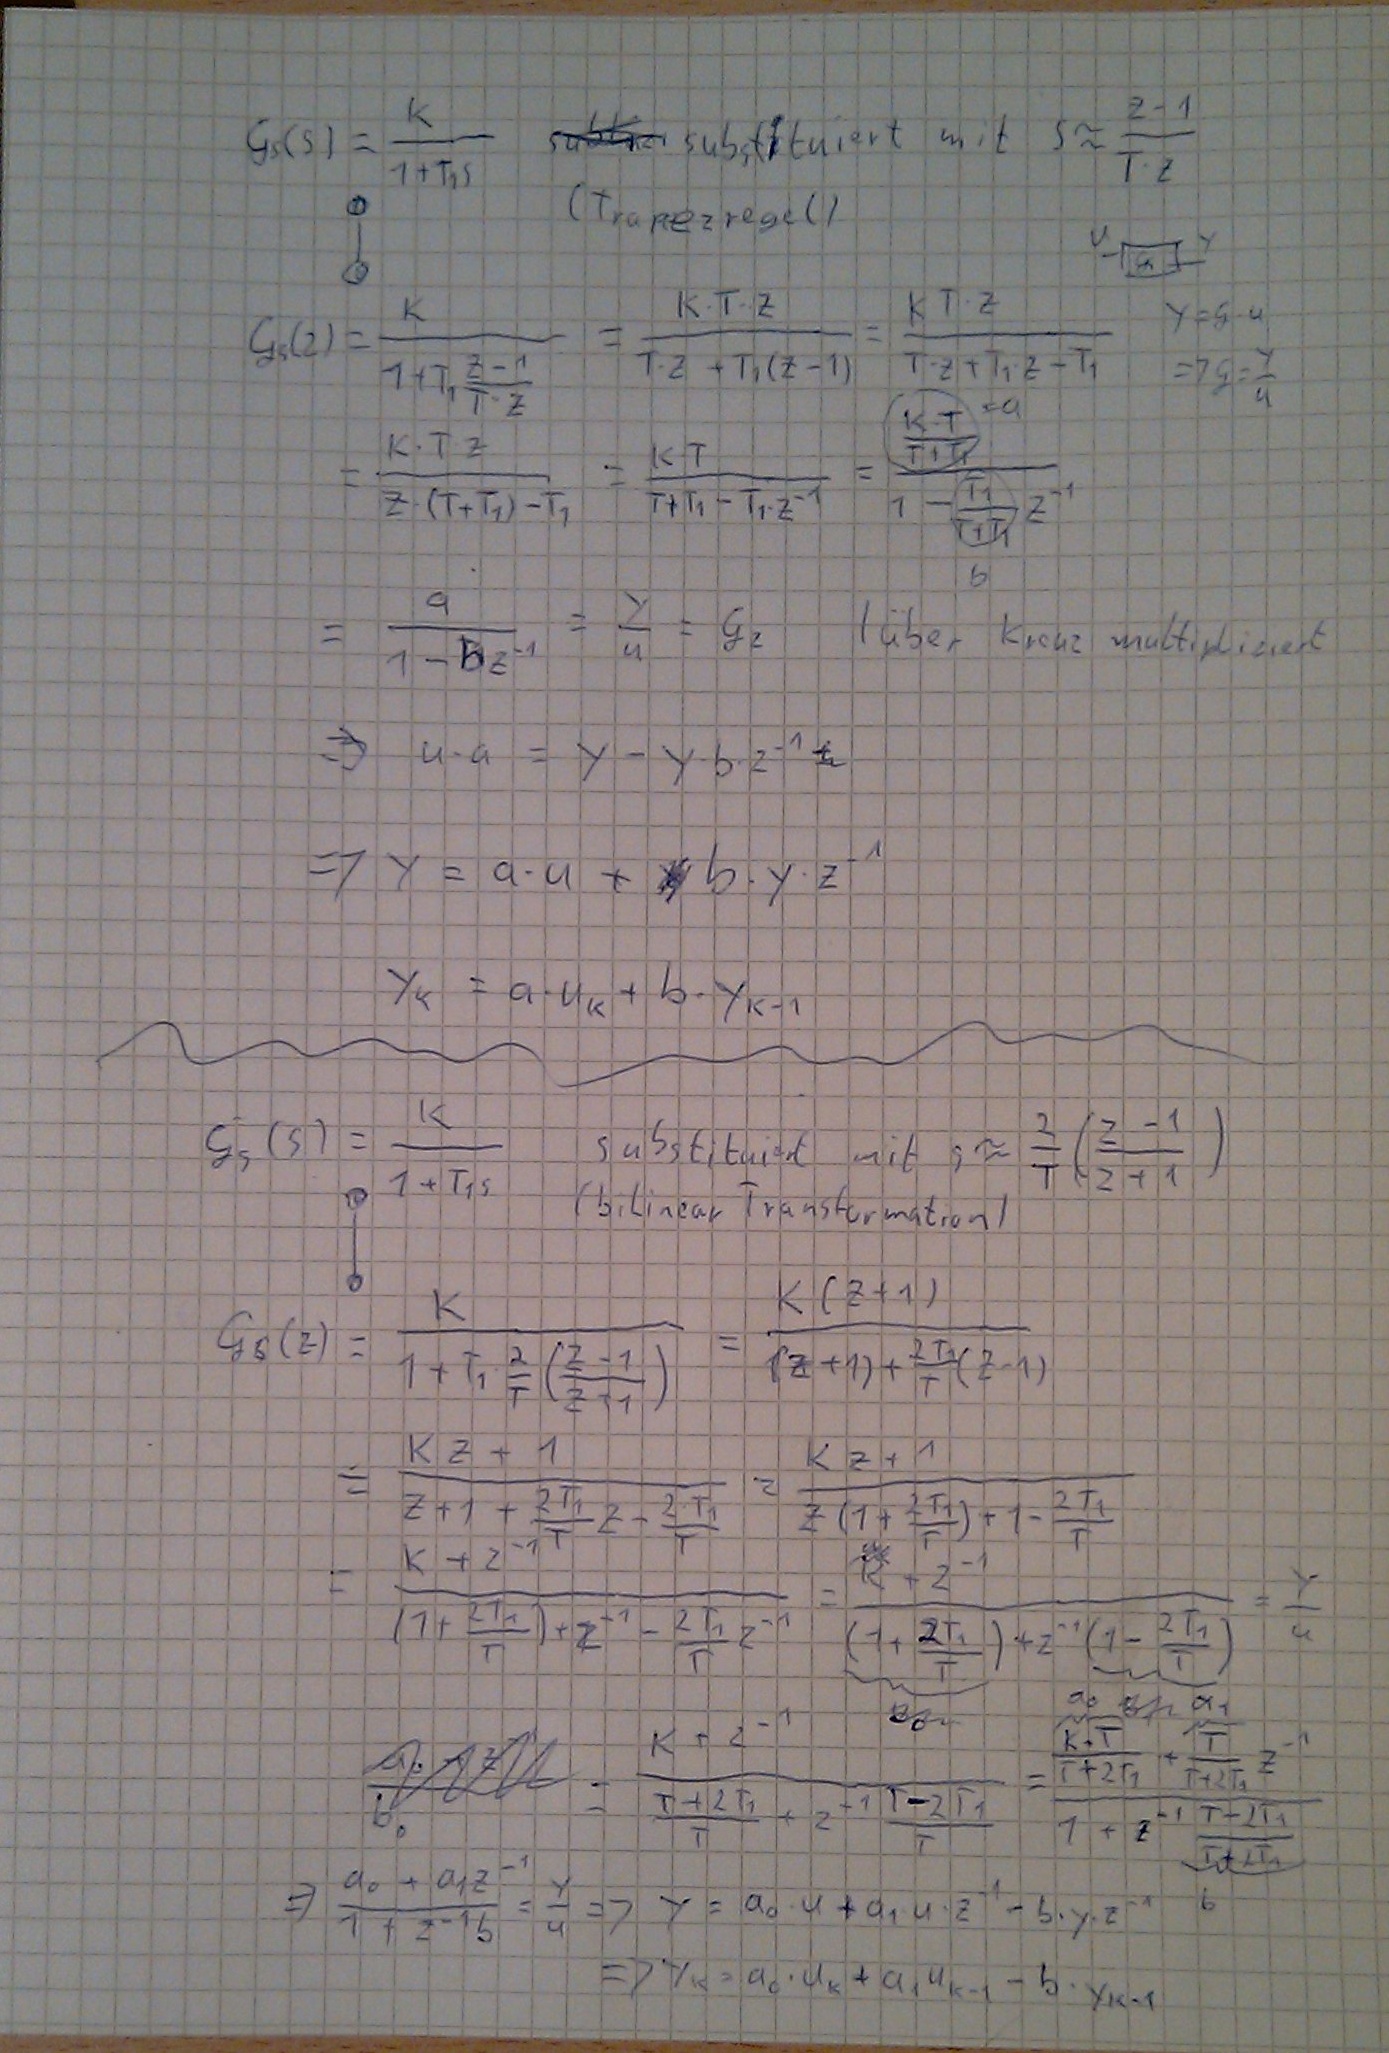 G_S(s) = K / (1+T₁s) substituiert mit s ≈ (z-1) / (T·z)
(Trapezregel)
U G Y
G_S(z) = K / (1+T₁ (z-1)/(T·z)) = K·T·z / (T·z + T₁(z-1)) = K T·z / (T·z+T₁·z-T₁) Y=G·u
=> G = Y/u
= K·T z / (z·(T+T₁)-T₁) = K T / (T+T₁-T₁·z⁻¹) = (K·T / (T+T₁)) / (1 - (T₁ / (T+T₁)) z⁻¹) =a
b
= a / (1-b z⁻¹) = Y/u = G_z | über Kreuz multipliziert
=> u·a = y - y·b·z⁻¹
=> Y = a·u + b·y·z⁻¹
y_K = a·u_K + b·y_{K-1}
G_S(s) = K / (1+T₁s) substituiert mit s ≈ 2/T ((z-1) / (z+1))
(bilinear Transformation)
G_S(z) = K / (1+T₁·2/T ((z-1) / (z+1))) = K(z+1) / ((z+1)+ 2T₁/T (z-1))
= (K z + 1) / (z+1+ 2T₁/T z - 2·T₁/T) = (K z+1) / (z(1+ 2T₁/T)+1- 2T₁/T)
= (K + z⁻¹) / ((1+ 2T₁/T)+z⁻¹ - 2T₁/T z⁻¹) = (K + z⁻¹) / ((1+ 2T₁/T)+z⁻¹(1- 2T₁/T)) = Y/u
a₀ a₁
= (K + z⁻¹) / ((T+2T₁)/T + z⁻¹ (T-2T₁)/T) = (K·T / (T+2T₁) + T / (T+2T₁) z⁻¹) / (1 + z⁻¹ (T-2T₁) / (T+2T₁))
b
=> (a₀ + a₁z⁻¹) / (1 + z⁻¹b) = Y/u => Y = a₀·u + a₁·u·z⁻¹ - b·y·z⁻¹
=> Y_K = a₀·u_K + a₁u_{K-1} - b·y_{K-1}